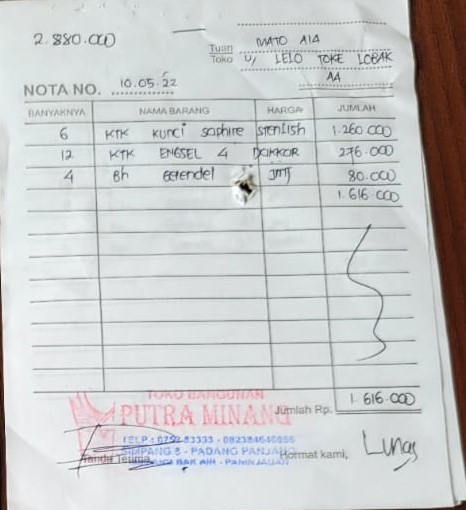 2.880.000
MATO AIA
Tuan
Toko U/ LELO TOKE LOBAK
AA
NOTA NO. 10.05.22
BANYAKNYA NAMA BARANG HARGA JUMLAH
6 KTK KUNCI Saphire Stenlish 1.260.000
12 KTK ENGSEL 4 DEKKOR 276.000
4 Bh Gerendel JMTJ 80.000
1.616.000
Jumlah Rp. 1.616.000
TOKO BANGUNAN
PUTRA MINANG
TELP : 0752-83333 -
SIMPANG 8 - PADANG PANJANG
Tanda Terima, Hormat kami, Lunas